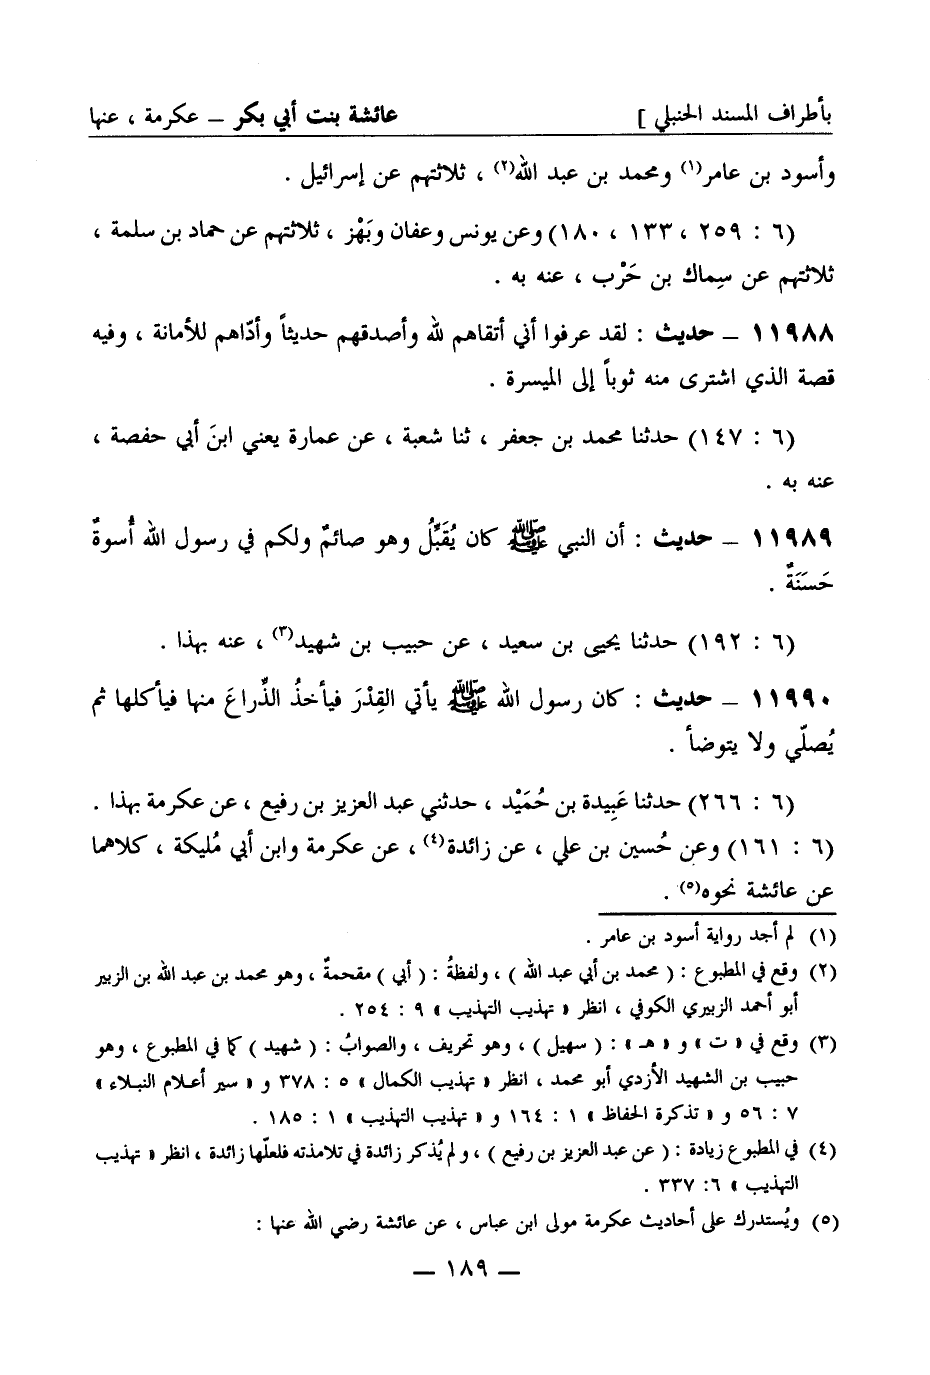 بأطراف المسند الحنبلي ] عائشة بنت أبي بكر – عكرمة ، عنها
وأسود بن عامر(١) ومحمد بن عبد الله(٢) ، ثلاثتهم عن إسرائيل .
(٦ : ٢٥٩ ، ١٣٣ ، ١٨٠) وعن يونس وعفان وبَهْز ، ثلاثتهم عن حماد بن سلمة ،
ثلاثتهم عن سِماك بن حَرْب ، عنه به .
١١٩٨٨ – حديث : لقد عرفوا أني أتقاهم لله وأصدقهم حديثاً وأدّاهم للأمانة ، وفيه
قصة الذي اشترى منه ثوباً إلى الميسرة .
(٦ : ١٤٧) حدثنا محمد بن جعفر ، ثنا شعبة ، عن عمارة يعني ابنَ أبي حفصة ،
عنه به .
١١٩٨٩ – حديث : أن النبي ﷺ كان يُقَبِّلُ وهو صائمٌ ولكم في رسول الله أُسوةٌ
حَسَنَةٌ .
(٦ : ١٩٢) حدثنا يحيى بن سعيد ، عن حبيب بن شهيد(٣) ، عنه بهذا .
١١٩٩٠ – حديث : كان رسول الله ﷺ يأتي القِدْرَ فيأخذُ الذِّراعَ منها فيأكلها ثم
يُصلّي ولا يتوضأ .
(٦ : ٢٦٦) حدثنا عَبِيدة بن حُمَيْد ، حدثني عبد العزيز بن رفيع ، عن عكرمة بهذا .
(٦ : ١٦١) وعن حُسين بن علي ، عن زائدة(٤) ، عن عكرمة وابن أبي مُليكة ، كلاهما
عن عائشة نحوه(٥) .
(١) لم أجد رواية أسود بن عامر .
(٢) وقع في المطبوع : ( محمد بن أبي عبد الله ) ، ولفظةُ : ( أبي ) مقحمةٌ ، وهو محمد بن عبد الله بن الزبير
أبو أحمد الزبيري الكوفي ، انظر « تهذيب التهذيب » ٩ : ٢٥٤ .
(٣) وقع في « ت » و « هـ » : ( سهيل ) ، وهو تحريف ، والصوابُ : ( شهيد ) كما في المطبوع ، وهو
حبيب بن الشهيد الأزدي أبو محمد ، انظر « تهذيب الكمال » ٥ : ٣٧٨ و « سير أعلام النبلاء »
٧ : ٥٦ و « تذكرة الحفاظ » ١ : ١٦٤ و « تهذيب التهذيب » ١ : ١٨٥ .
(٤) في المطبوع زيادة : ( عن عبد العزيز بن رفيع ) ، ولم يُذكر زائدة في تلامذته فلعلّها زائدة ، انظر « تهذيب
التهذيب » ٦: ٣٣٧ .
(٥) ويُستدرك على أحاديث عكرمة مولى ابن عباس ، عن عائشة رضي الله عنها :
– ١٨٩ –